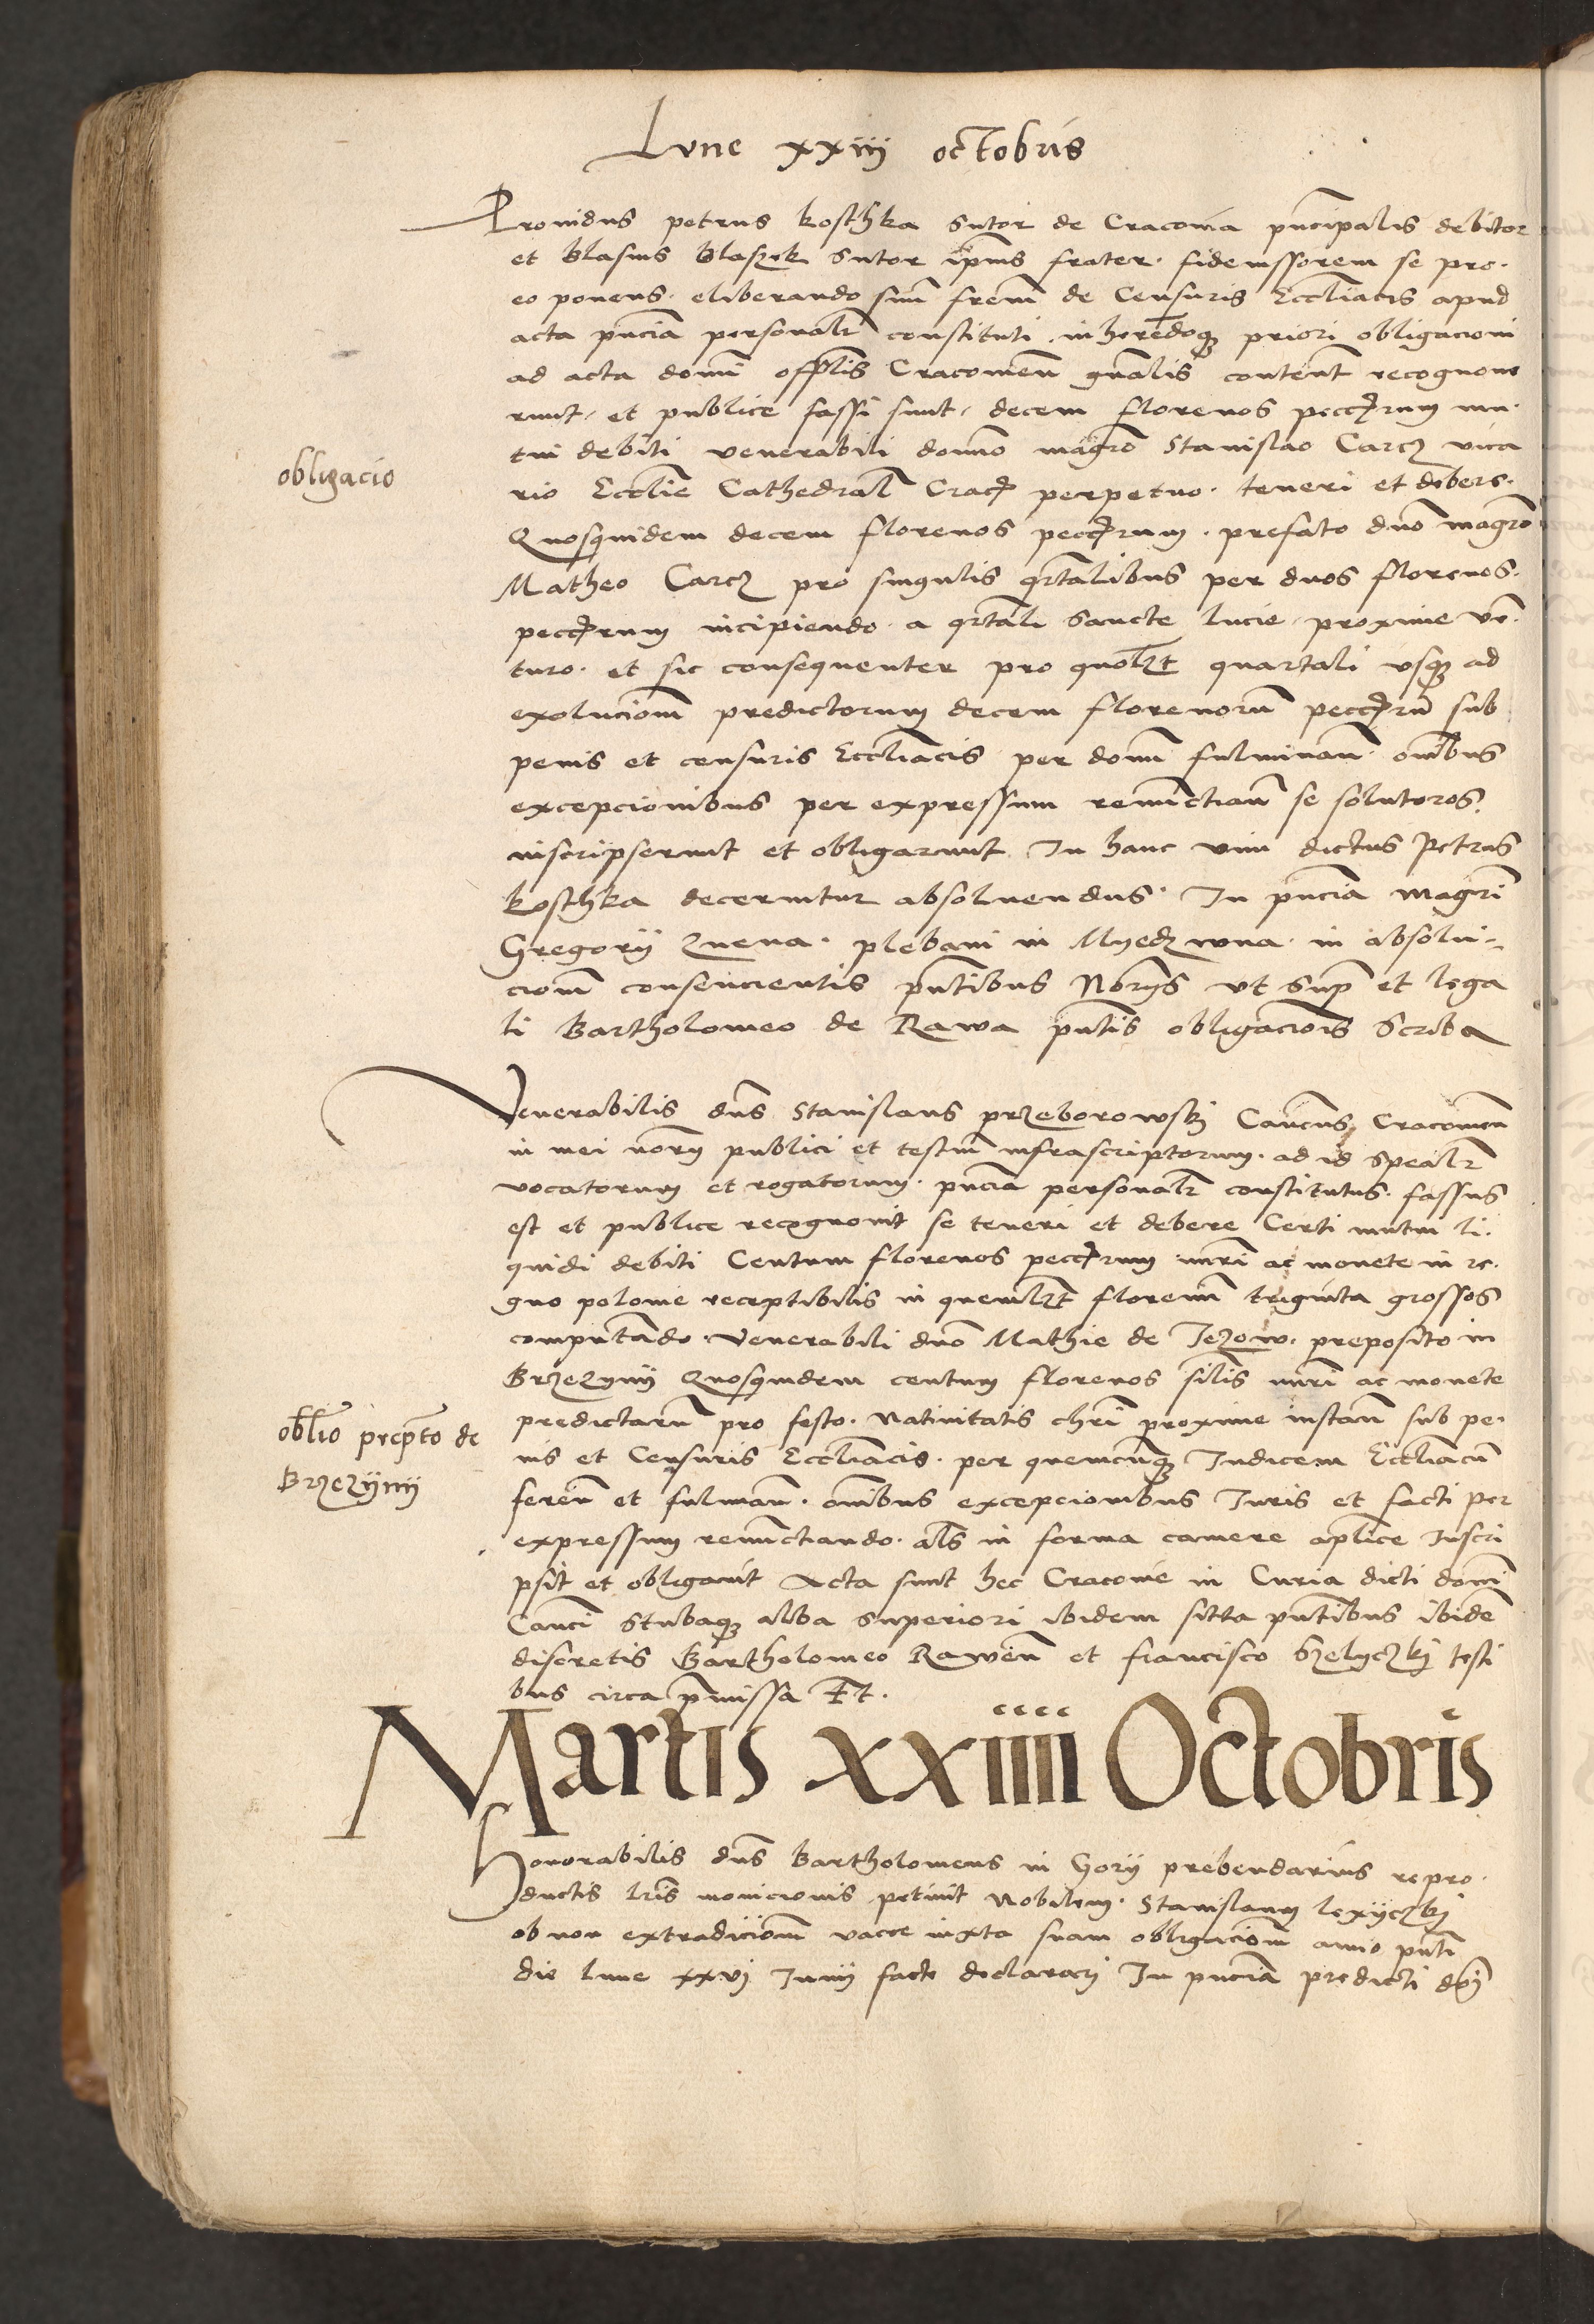 Lune xxiij octobris
Prouidus petrus Koschka Sutor de Cracouia pncipalis debitor
et Blasius Blaszek Sutor ipius frater. fideiussorem se pro.
eo ponens. eliberando suu frem de Censuris Eccliacis apud
acta pncia personalr constituti inherendoq priori obligacioni
ad acta domi offlis Cracouien gnalis content recognoue
runt, et publice fassi sunt, decem florenos pecc rum mu.
tui debiti venerabili domno magro Stanislao Carcz vica
obligacio
rio Ecclie Cathedral Crac perpetuo. teneri et debere.
Quosquidem decem florenos pecc rum. prefato dno magro
Matheo Carcz pro singulis qrtalibus per duos florenos.
pecc rum incipiendo a qrtali Sancte lucie, proxime ve.
turo. et sic consequenter pro quolzt quartali vsq ad
exolucionem predictorum decem florenoru pecc ru sub
penis et censuris Eccliacis per domi fulminan omibus
excepcionibus per expressum renunctian se soluturos
inscripserunt et obligarunt In hanc vim dictus Petrus
Koschka decernitur absoluendus. In pncia magri
Gregorij plebani in in absolu-
cionem consencientis pntibus Norijs vt sup et lega
li Bartholomeo de Rawa pntis obligacionis Scriba
Venerabilis dns Stanislaus przeborowskj Cancus Cracouien
in mei norij publici et testiu infrascriptorum. ad id spealr
vocatorum et rogatorum. pncia personalr constitutus. fassus
est et publice recognouit se teneri et debere Certi mutui li.
quidi debiti Centum florenos pecc rum nuri ac monete in re.
gno polonie receptibilis in quemlzt florenu triginta grossos
computando. Venerabili dno Mathie de Jezow. preposito in
Brzezynij Quosquidem centum florenos silis nuri ac monete
oblio prepto de
predictaru pro festo. Natiuitatis chri proxime instan sub pe.
Brzezijnij
nis et Censuris Eccliacis. per quemcunq Judicem Eccliacu
feren et fulminan. omibus excepcionibus Juris et facti per
expressum renunctiando. als in forma camere aplice Inscri
psit et obligauit Acta sunt hec Cracouie in Curia dicti domi
Canci Stubaq alba superiori ibidem sitta pntibus ibide
discretis Bartholomeo Rawen et francisco testi
bus circa pmissa Et.
Martis xxiiii Octobris
Honorabilis dns Bartholomeus in Gorij prebendarius repro.
ductis lris monicionis petiuit Nobilem. Stanislaum lexijczkj
ob non extradicionem vacce iuxta suam obligacionem anno pnti
die lune xxvj Junij facte declararj In pncia predicti dni